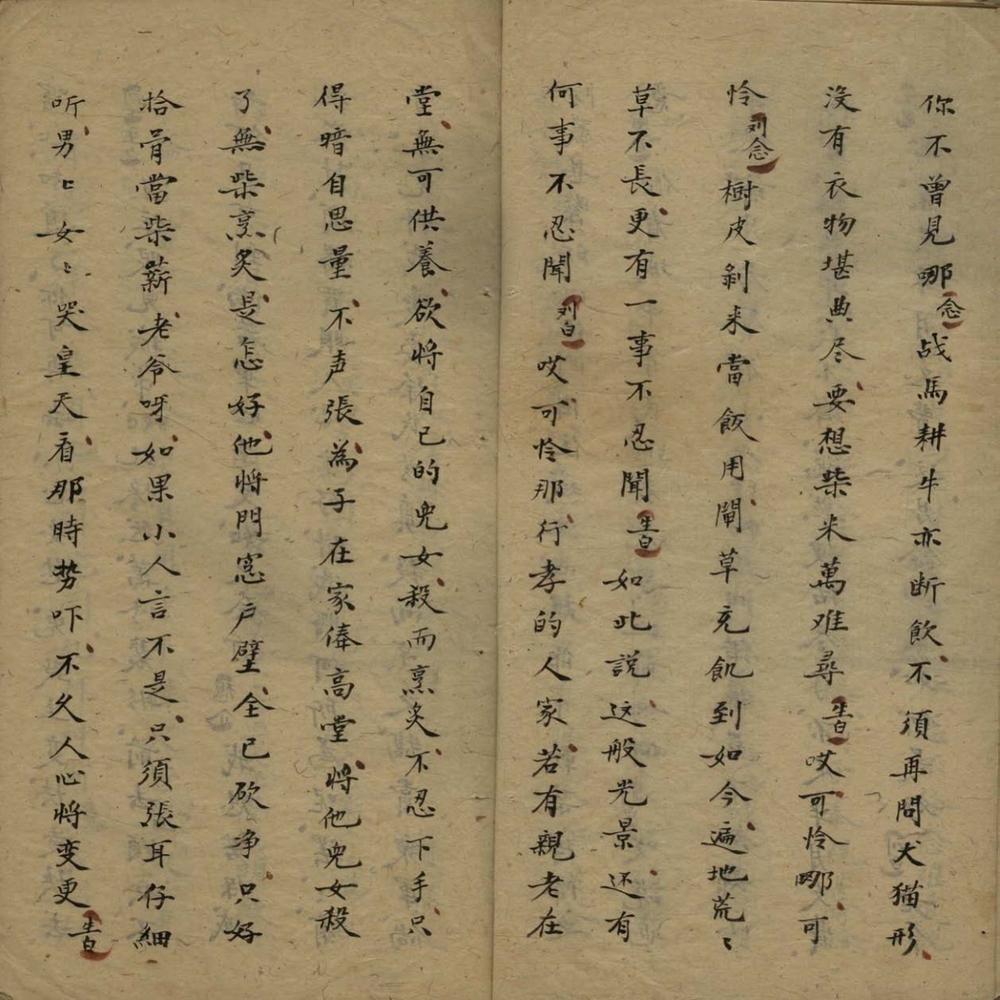 你不曾見哪念战馬耕牛亦断飲不須再問犬猫形
沒有衣物堪典尽要想柴米萬难尋生白哎可怜哪可
怜刘念樹皮剥来當飯用闈草充飢到如今遍地荒〻
草不長更有一事不忍聞生白如此説这般光景还有
何事不忍聞刘白哎可怜那行孝的人家若有親老在
堂無可供養欲将自己的兒女殺而烹炙不忍下手只
得暗自思量不声張為子在家俸高堂将他兒女殺
了無柴烹炙是怎好他将門窓户壁全已砍净只好
拾骨當柴薪老爷呀如果小人言不是只須張耳仔細
听男〻女〻哭皇天看那時势吓不久人心将变更生白